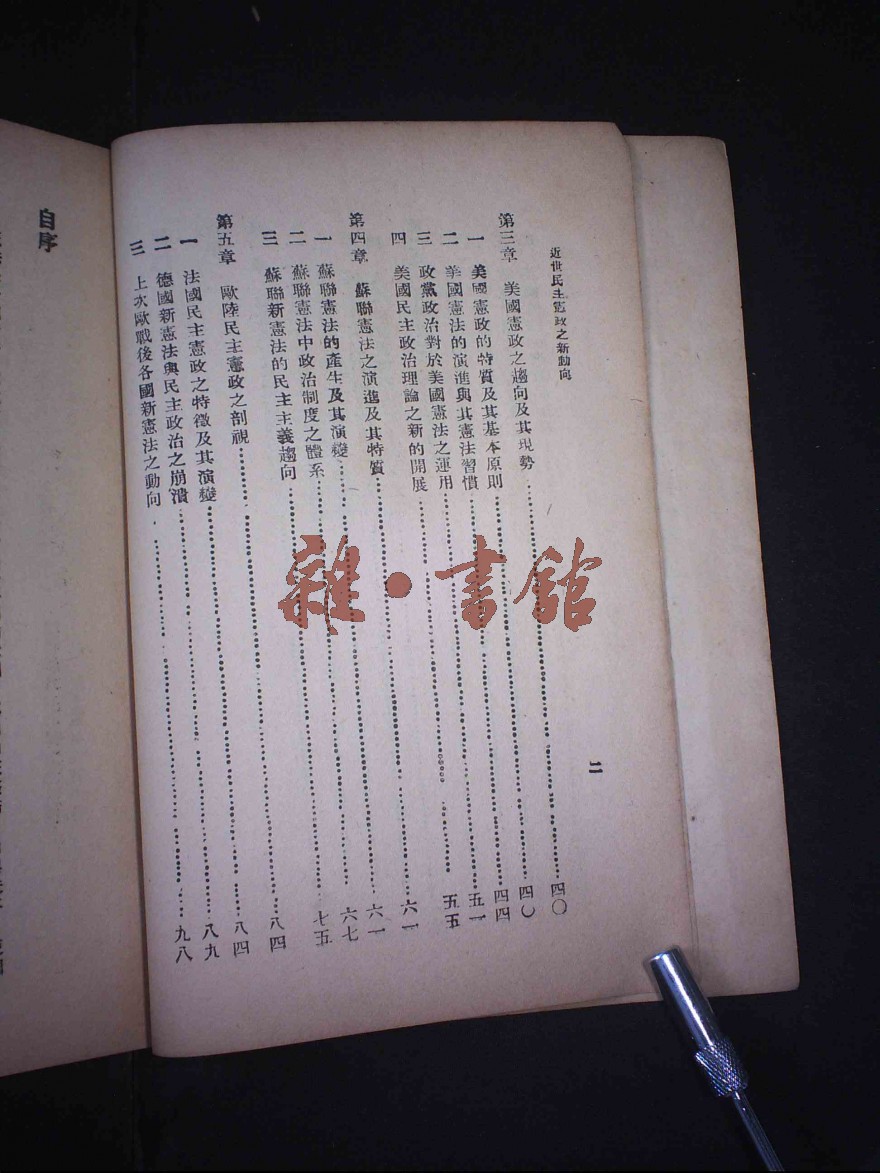 近世民主憲政之新動向
二
第三章 美國憲政之趨向及其現勢……四〇
一 美國憲政的特質及其基本原則……四〇
二 美國憲法的演進與其憲法習慣……四四
三 政黨政治對於美國憲法之運用……五一
四 美國民主政治理論之新的開展……五五
第四章 蘇聯憲法之演進及其特質……六一
一 蘇聯憲法的產生及其演變……六一
二 蘇聯憲法中政治制度之體系……六七
三 蘇聯新憲法的民主主義趨向……七五
第五章 歐陸民主憲政之剖視……八四
一 法國民主憲政之特徵及其演變……八四
二 德國新憲法與民主政治之崩潰……八九
三 上次歐戰後各國新憲法之動向……九八
自序
雜·書館